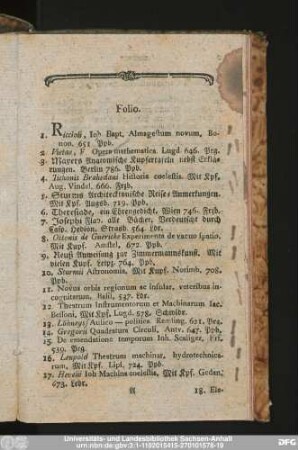 Folio.
1. Riccioli, Joh Bapt. Almagestum novum, Bo-
non. 651 Ppb.
2 Vietae, F Opera mathematica Lugd 646. Prg.
3. Mayers Anatomische Kupfertafeln nebst Erklä-
rungen. Berlin 786. Ppb.
4. Tichonis Brahedani historia coelestis. Mit Kpf.
Aug. Vindel. 666. Frzb.
5. Sturms Architectonische Reise-Anmerkungen.
Mit Kpf. Augsb. 719. Ppb.
6. Theresiade, ein Ehrengedicht. Wien 746. Frzb.
7. Josephi Flav. alle Bücher, Verdeutscht durch
Casp. Hedion. Strasb. 564. Ldr.
8. Ottonis de Guericke Experimenta de vacuo spatio.
Mit Kupf. Amstel. 672. Ppb.
9. Reuß Anweisung zur Zimmermannskunst. Mit
vielen Kupf. Leipz. 764. Ppb.
10. Sturmii Astronomia, Mit Kupf. Norimb. 708.
Ppb.
11. Novus orbis regionum ac insular. veteribus in-
cognitarum, Basil. 537. Ldr.
12. Theatrum Instrumentorum et Machinarum Jac.
Bessoni, Mit Kpf. Lugd. 578. Schwldr.
13. Löhneys Aulico — politica. Remling. 621. Prg.
14. Gregorii Quadratura Circuli, Antv. 647. Ppb.
15. De emendatione temporum Jos. Scaliger. Frf.
539. Prg
16. Leupold Theatrum machinar. hydrotechnica-
rum, Mit Kpf. Lips. 724. Ppb.
17. Hevelii Joh Machina coelestis, Mit Kpf. Gedan.
673. Ldr.
A
18. Ele-
Universitäts- und Landesbibliothek Sachsen-Anhalt
urn:nbn:de:gbv:3:1-1192015415-270101576-19